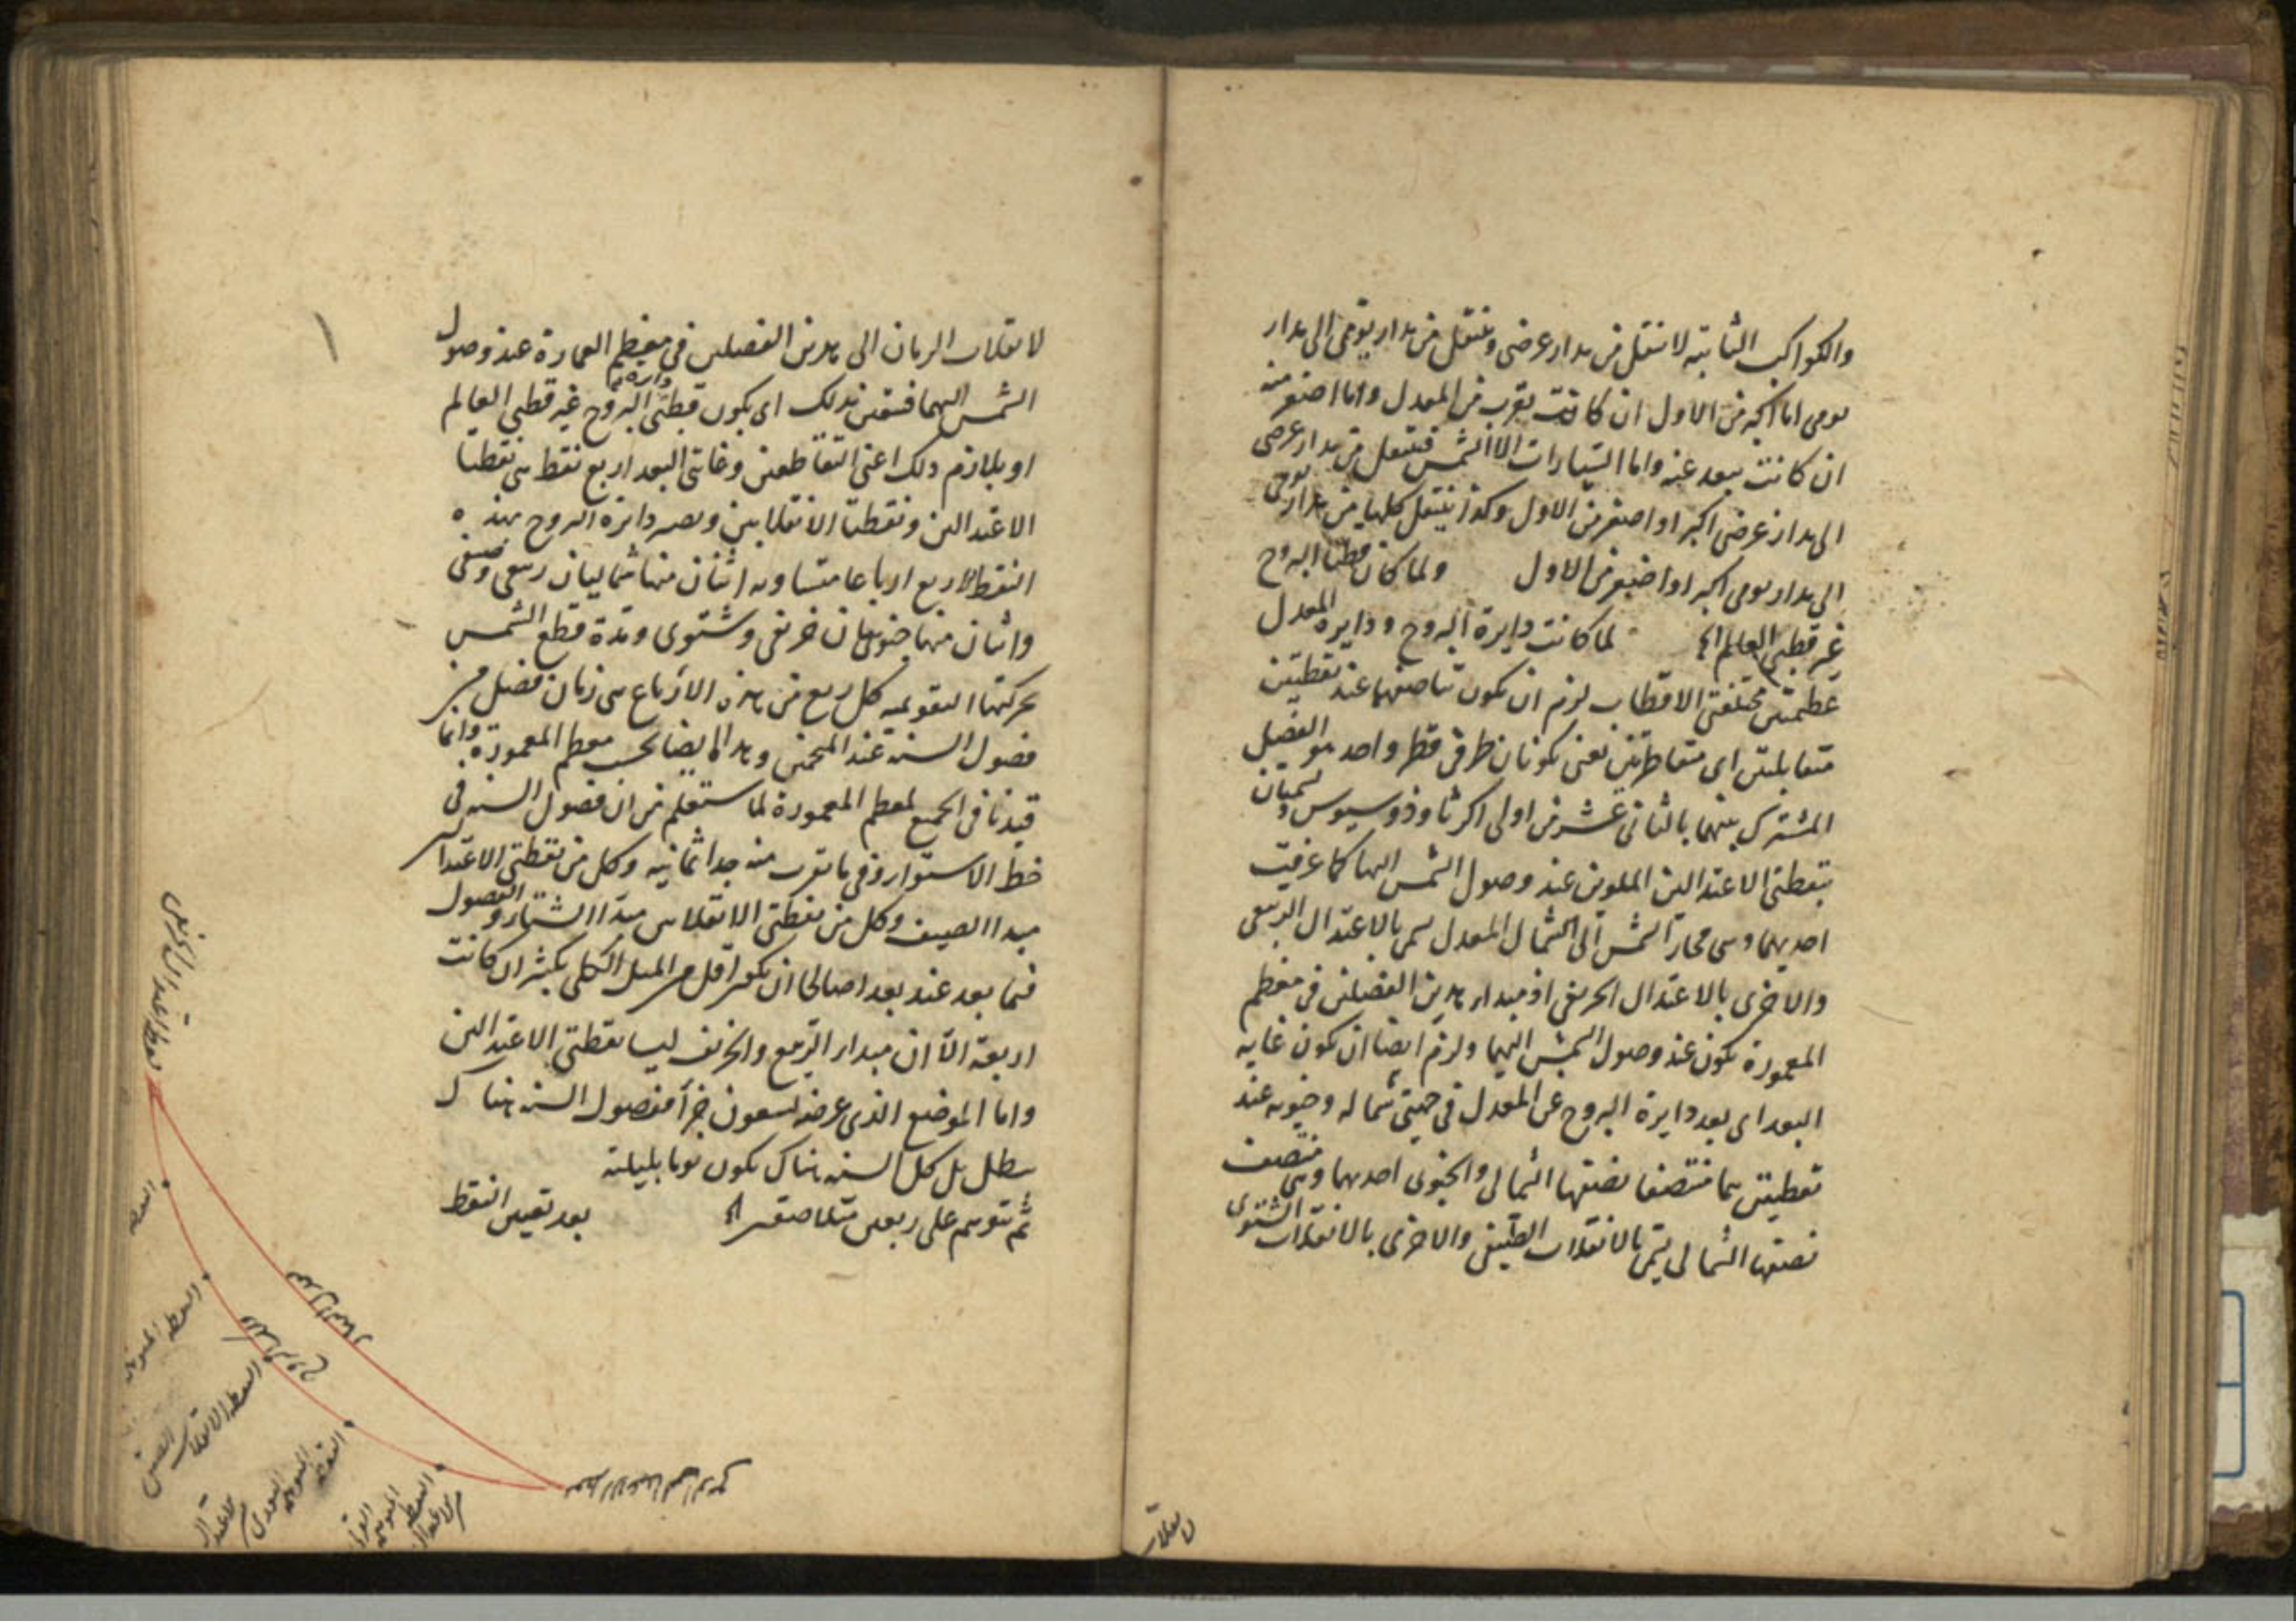 والكواكب الثابتة لا تنتقل من مدار عرضى وتنتقل من مدار يومى الى مدار
يومى اما اكبر من الاول ان كانت تقرب من المعدل واما اصغر منه
ان كانت تبعد عنه واما السيارات الا الشمس فتنتقل من مدار عرضى
الى مدار عرضى اكبر او اصغر من الاول وكذا ينتقل كلها من مدار يومى
الى مدار يومى اكبر او اصغر من الاول ولما كان قطبا البروج
غير قطبى العالم لما كانت دايرة البروج ودايرة المعدل
عظيمتين مختلفتى الاقطاب لزم ان يكون تناصفهما عند نقطتين
متقابلتين اى متقاطرتين يعنى تكونان طرفى قطر واحد هو الفصل
المشترك بينهما بالثانى عشر من اولى اكر ثاوذوسيوس وتسميان
بنقطتى الاعتدالين الملوين عند وصول الشمس اليها كما عرفت
احديهما وهى مجاز الشمس الى الشمال المعدل تسمى بالاعتدال الربيعى
والاخرى بالاعتدال الخريفى اذ مبدأ هذين الفصلين فى معظم
المعمورة يكون عند وصول الشمس اليهما ولزم ايضا ان يكون غاية
البعد اى بعد دايرة البروج عن المعدل فى جهتى شماله وجنوبه عند
نقطتين هما منتصفا نصفيها الشمالى والجنوبى احديهما وهى منتصف
نصفها الشمالى يسمى بالانقلاب الصيفى والاخرى بالانقلاب الشتوى
لانقلاب
لانقلاب الزمان الى هذين الفصلين فى معظم العمارة عند وصول
الشمس اليهما فتعين بذلك اى بكون قطبى دايرة البروج غير قطبى العالم
او بلازم ذلك اعنى التقاطعين وغايتى البعد اربع نقط هى نقطتا
الاعتدالين ونقطتا الانقلابين وتصير دايرة البروج بهذه
النقط الاربع ارباعا متساوية اثنان منها شماليان ربيعى وصيفى
واثنان منها جنوبيان خريفى وشتوى ومدة قطع الشمس
بحركتها التقويمية كل ربع من هذه الارباع هى زمان فصل من
فصول السنة عند المنجمين وهذا ايضا بحسب معظم المعمورة وانما
قيدنا فى الجميع لمعظم المعمورة لما ستعلم من ان فصول السنة فى
خط الاستواء وفى ما تقرب منه جدا ثمانية وكل من نقطتى الاعتدالين
مبدأ الصيف وكل من نقطتى الانقلابين مبدأ الشتاء والفصول
فيما بعد عنه بعدا صالحا ان يكون اقل من الميل الكلى بكثير ان كانت
اربعة الا ان مبدأ الربيع والخريف ليسا نقطتى الاعتدالين
واما الموضع الذى عرضه تسعون جزأ ففصول السنة هناك
تبطل بل كل السنة هناك يكون يوما بليلته
ثم نتوهم على ربعين متلاصقين بعد تعيين النقط
معدل النهار
فلك البروج
النقطة
النقطة